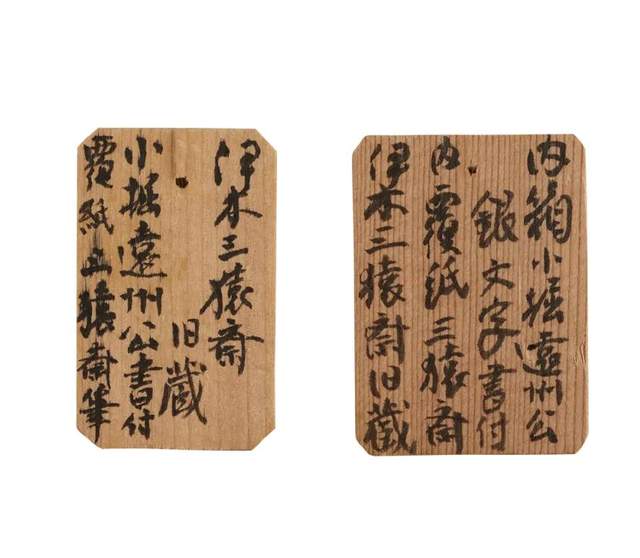 伊木三猿斎
旧蔵
小堀遠州公書付
覆紙三猿斎筆
内箱小堀遠州公
銀文字書付
内覆紙三猿斎
伊木三猿斎旧蔵